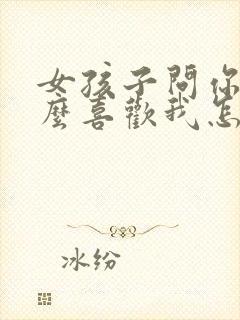 女孩子問你
麼喜歡我怎
冰纷